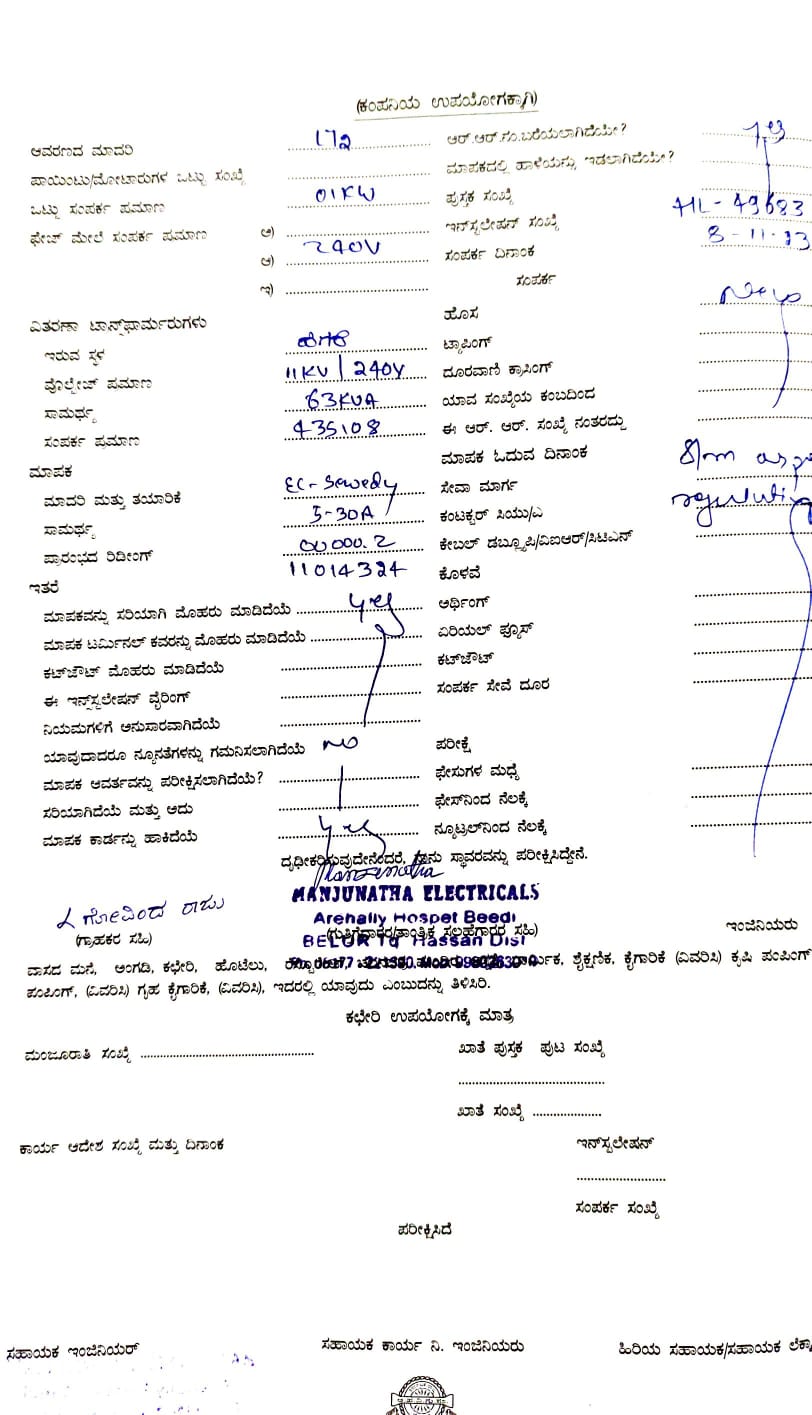 (ಕಂಪನಿಯ ಉಪಯೋಗಕ್ಕಾಗಿ)
ಆವರಣದ ಮಾದರಿ ಆರ್.ಆರ್.ನಂ.ಬರೆಯಲಾಗಿದೆಯೇ?
ಪಾಯಿಂಟು/ಮೋಟಾರುಗಳ ಒಟ್ಟು ಸಂಖ್ಯೆ ಮಾಪಕದಲ್ಲಿ ಹಾಳೆಯನ್ನು ಇಡಲಾಗಿದೆಯೇ?
ಒಟ್ಟು ಸಂಪರ್ಕ ಪ್ರಮಾಣ 01KW ಪುಸ್ತಕ ಸಂಖ್ಯೆ
ಫೇಜ್ ಮೇಲೆ ಸಂಪರ್ಕ ಪ್ರಮಾಣ ಅ) ಇನ್‌ಸ್ಟಲೇಷನ್ ಸಂಖ್ಯೆ HL-49683
ಆ) 240V ಸಂಪರ್ಕ ದಿನಾಂಕ 8-11-13
ಇ) ಸಂಪರ್ಕ
ವಿತರಣಾ ಟ್ರಾನ್ಸ್‌ಫಾರ್ಮರುಗಳು ಹೊಸ New
ಇರುವ ಸ್ಥಳ ಟ್ಯಾಪಿಂಗ್
ವೊಲ್ಟೇಜ್ ಪ್ರಮಾಣ 11KV/240V ದೂರವಾಣಿ ಕ್ರಾಸಿಂಗ್
ಸಾಮರ್ಥ್ಯ 63KVA ಯಾವ ಸಂಖ್ಯೆಯ ಕಂಬದಿಂದ
ಸಂಪರ್ಕ ಪ್ರಮಾಣ 435108 ಈ ಆರ್. ಆರ್. ಸಂಖ್ಯೆ ನಂತರದ್ದು
ಮಾಪಕ ಮಾಪಕ ಓದುವ ದಿನಾಂಕ
ಮಾದರಿ ಮತ್ತು ತಯಾರಿಕೆ EC-Sewedy ಸೇವಾ ಮಾರ್ಗ
ಸಾಮರ್ಥ್ಯ 5-30A ಕಂಟಕ್ಟರ್ ಸಿಯು/ಎ
ಪ್ರಾರಂಭದ ರಿಡಿಂಗ್ 00000.2 ಕೇಬಲ್ ಡಬ್ಲ್ಯೂಪಿ/ವಿಐಆರ್/ಸಿಟಿಎಸ್
11014324 ಕೊಳವೆ
ಇತರೆ
ಮಾಪಕವನ್ನು ಸರಿಯಾಗಿ ಮೊಹರು ಮಾಡಿದೆಯೆ yes ಅರ್ಥಿಂಗ್
ಮಾಪಕ ಟರ್ಮಿನಲ್ ಕವರನ್ನು ಮೊಹರು ಮಾಡಿದೆಯೆ ಏರಿಯಲ್ ಫ್ಯೂಸ್
ಕಟ್‌ಔಟ್ ಮೊಹರು ಮಾಡಿದೆಯೆ ಕಟ್‌ಔಟ್
ಈ ಇನ್‌ಸ್ಟಲೇಷನ್ ವೈರಿಂಗ್ ಸಂಪರ್ಕ ಸೇವೆ ದೂರ
ನಿಯಮಗಳಿಗೆ ಅನುಸಾರವಾಗಿದೆಯೆ
ಯಾವುದಾದರೂ ನ್ಯೂನತೆಗಳನ್ನು ಗಮನಿಸಲಾಗಿದೆಯೆ no ಪರೀಕ್ಷೆ
ಮಾಪಕ ಆವರ್ತವನ್ನು ಪರೀಕ್ಷಿಸಲಾಗಿದೆಯೆ? ಫೇಸುಗಳ ಮಧ್ಯೆ
ಸರಿಯಾಗಿದೆಯೆ ಮತ್ತು ಅದು ಫೇಸ್‌ನಿಂದ ನೆಲಕ್ಕೆ
ಮಾಪಕ ಕಾರ್ಡನ್ನು ಹಾಕಿದೆಯೆ yes ನ್ಯೂಟ್ರಲ್‌ನಿಂದ ನೆಲಕ್ಕೆ
ದೃಢೀಕರಿಸುವುದೇನೆಂದರೆ, ನಾನು ಸ್ಥಾವರವನ್ನು ಪರೀಕ್ಷಿಸಿದ್ದೇನೆ.
Manjunatha
MANJUNATHA ELECTRICALS
ಗೋವಿಂದ ರಾಜು Arehally Hospet Beedi
(ಗ್ರಾಹಕರ ಸಹಿ) (ಗುತ್ತಿಗೆದಾರರ/ತಾಂತ್ರಿಕ ಸಲಹೆಗಾರರ ಸಹಿ) ಇಂಜಿನಿಯರು
BELUR Tq Hassan Dist
ವಾಸದ ಮನೆ, ಅಂಗಡಿ, ಕಛೇರಿ, ಹೊಟೆಲು, ಶೈಕ್ಷಣಿಕ, ಕೈಗಾರಿಕೆ (ವಿವರಿಸಿ) ಕೃಷಿ ಪಂಪಿಂಗ್
ಪಂಪಿಂಗ್, (ವಿವರಿಸಿ) ಗೃಹ ಕೈಗಾರಿಕೆ, (ವಿವರಿಸಿ), ಇದರಲ್ಲಿ ಯಾವುದು ಎಂಬುದನ್ನು ತಿಳಿಸಿರಿ.
ಕಛೇರಿ ಉಪಯೋಗಕ್ಕೆ ಮಾತ್ರ
ಮಂಜೂರಾತಿ ಸಂಖ್ಯೆ ಖಾತೆ ಪುಸ್ತಕ ಪುಟ ಸಂಖ್ಯೆ
ಖಾತೆ ಸಂಖ್ಯೆ
ಕಾರ್ಯ ಆದೇಶ ಸಂಖ್ಯೆ ಮತ್ತು ದಿನಾಂಕ ಇನ್‌ಸ್ಟಲೇಷನ್
ಸಂಪರ್ಕ ಸಂಖ್ಯೆ
ಪರೀಕ್ಷಿಸಿದೆ
ಸಹಾಯಕ ಇಂಜಿನಿಯರ್ ಸಹಾಯಕ ಕಾರ್ಯ ನಿ. ಇಂಜಿನಿಯರು ಹಿರಿಯ ಸಹಾಯಕ/ಸಹಾಯಕ